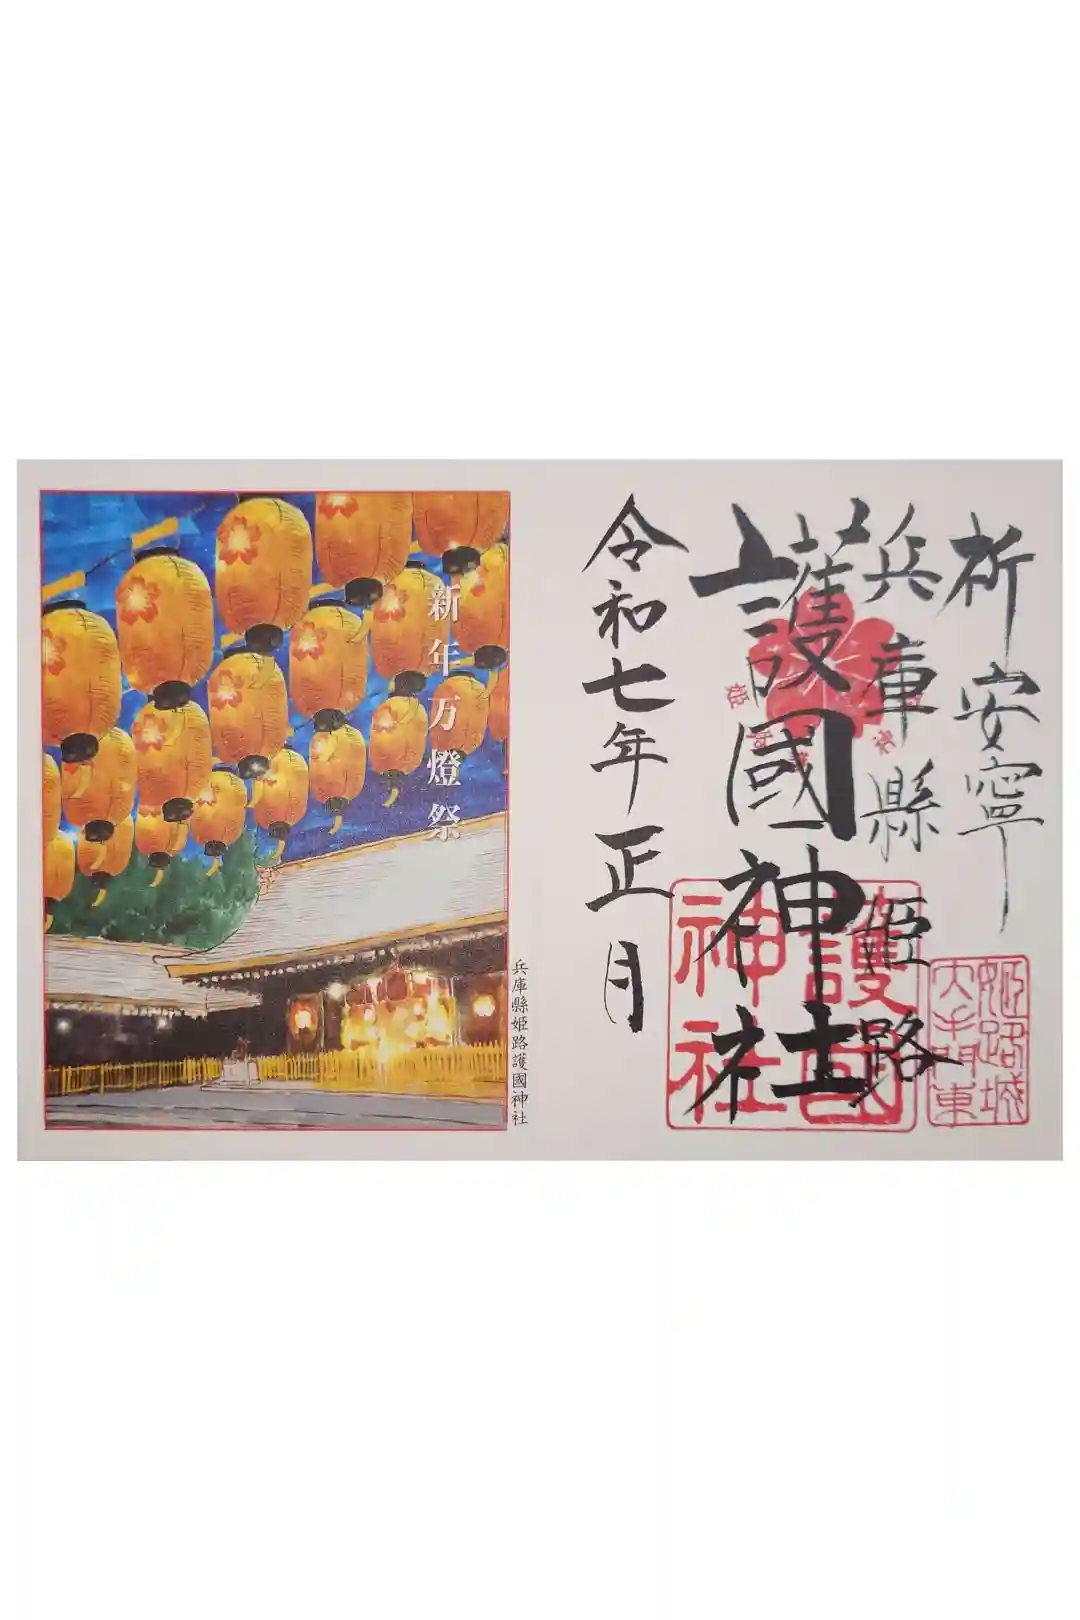 祈安寧
兵庫縣姫路
護國神社
令和七年正月
姫路城
大手門東
護國
神社
新年万燈祭
兵庫縣姫路護國神社